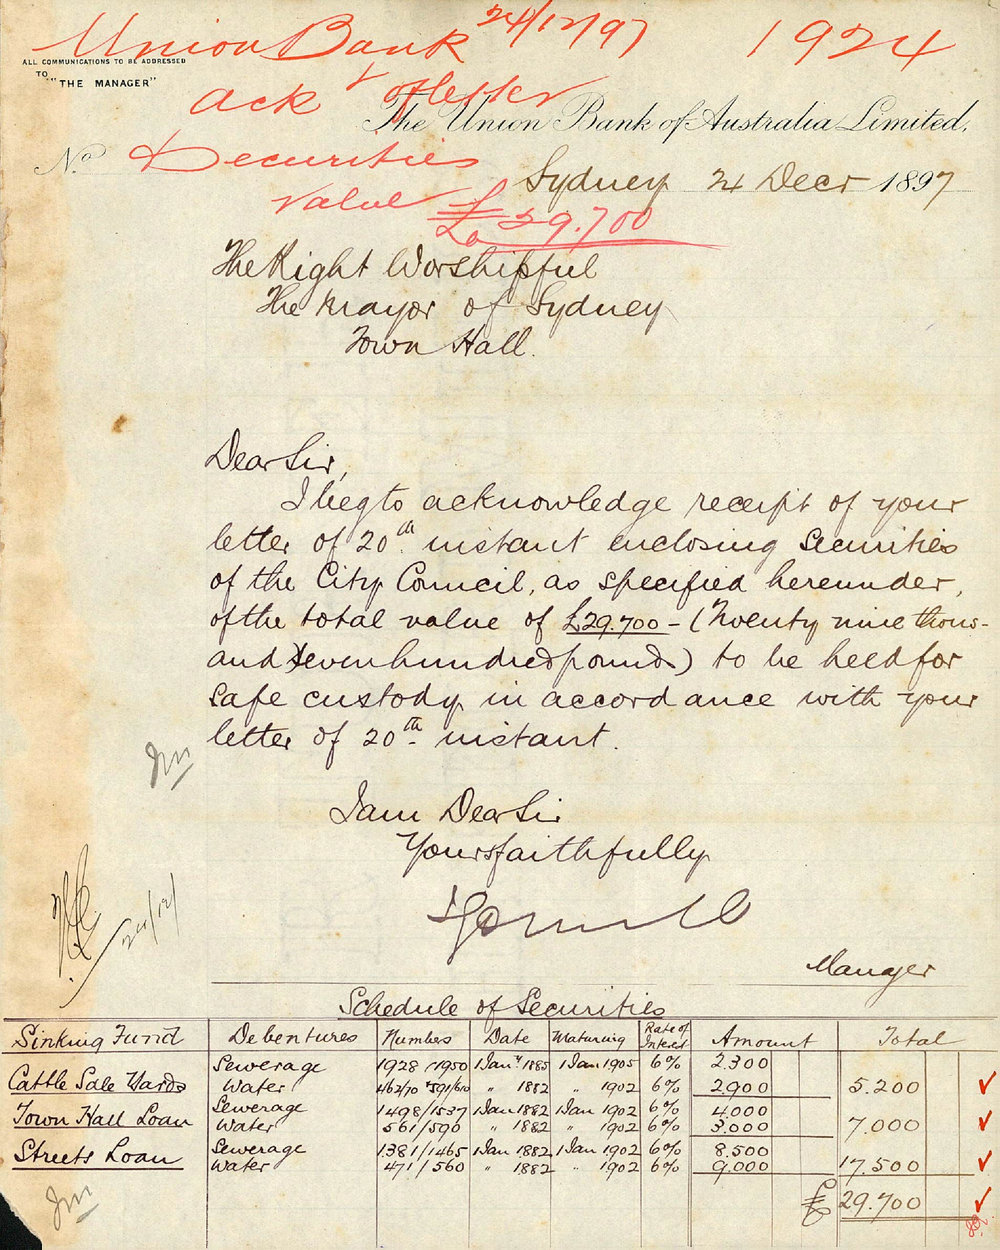 Union Bank 24/12/97 1924
ALL COMMUNICATIONS TO BE ADDRESSED
TO "THE MANAGER"
ack of letter
The Union Bank of Australia Limited.
No. Securities
Sydney 24 Decr 1897
value £29.700
The Right Worshipful
The Mayor of Sydney
Town Hall.
Dear Sir,
I beg to acknowledge receipt of your
letter of 20th instant enclosing Securities
of the City Council, as specified hereunder,
of the total value of £29.700 - (Twenty nine thous-
and seven hundred pounds) to be held for
safe custody in accordance with your
letter of 20th instant.
I am Dear Sir
Yours faithfully
Manager
24/12/
Schedule of Securities
Sinking Fund Debentures Numbers Date Maturing Rate of Interest Amount Total
Sewerage 1928/1950 1 Jany 1885 1 Jan 1905 6% 2.300
Cattle Sale Yards Water 462/70 591/610 " 1882 " 1902 6% 2900 5.200
Sewerage 1498/1537 1 Jan 1882 1 Jan 1902 6% 4.000
Town Hall Loan Water 561/590 " 1882 " 1902 6% 3.000 7.000
Streets Loan Sewerage 1381/1465 1 Jan 1882 1 Jan 1902 6% 8.500
Water 471/560 " 1882 " 1902 6% 9.000 17.500
£ 29.700